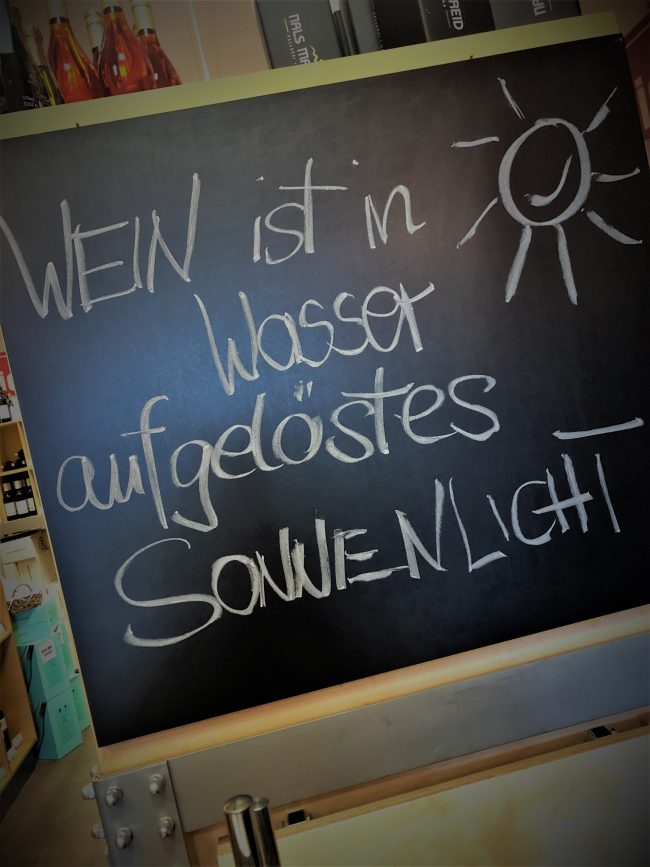 NALS MA
REID
WEIN ist in
Wasser
aufgelöstes
SONNENLICHT